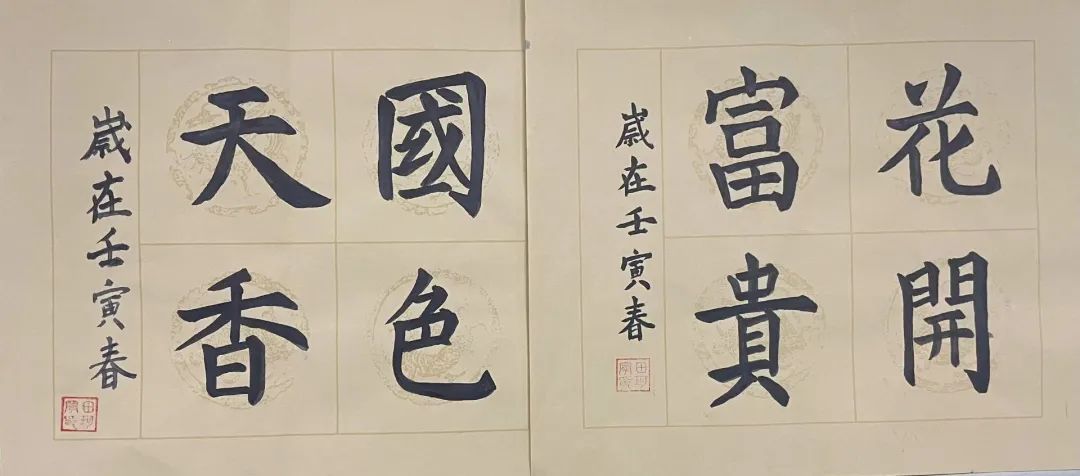 花開
富貴
歲在壬寅春
國色
天香
歲在壬寅春